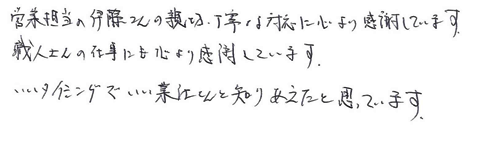 営業担当の伊藤さんの親切、丁寧な対応に心より感謝しています。
職人さんの仕事にも心より感謝しています。
いいタイミングでいい業社さんと知りあえたと思っています。